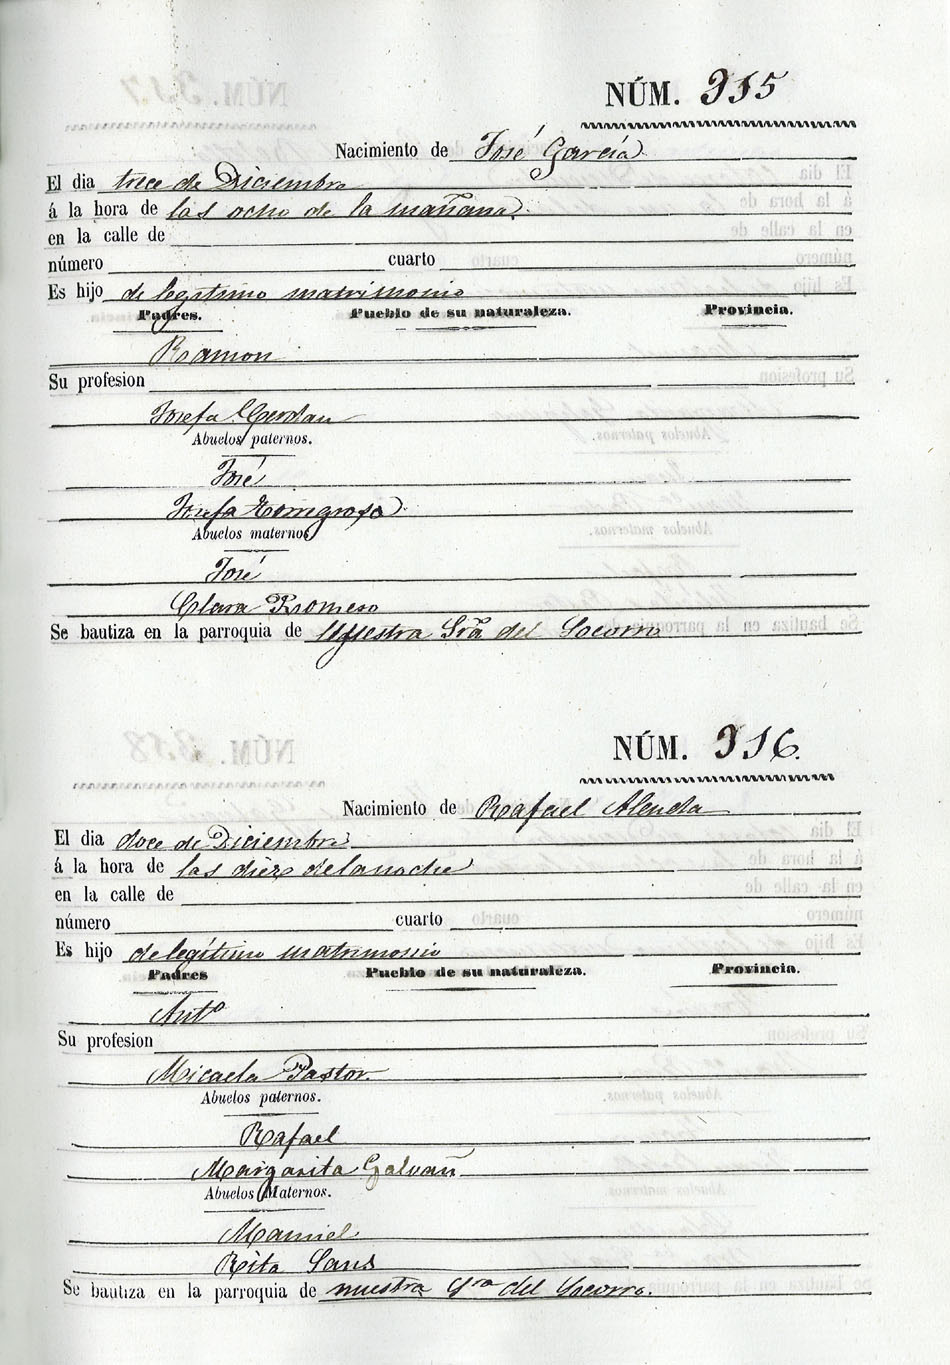 NÚM. 315
Nacimiento de José García
El dia trece de Diciembre
á la hora de las ocho de la mañana
en la calle de
número cuarto
Es hijo de legítimo matrimonio
Padres. Pueblo de su naturaleza. Provincia.
Ramon
Su profesion
Josefa Cerdan
Abuelos paternos.
José
Josefa
Abuelos maternos
José
Clara Romero
Se bautiza en la parroquia de Nuestra Sra del Socorro
NÚM. 316.
Nacimiento de Rafael Alenda
El dia doce de Diciembre
á la hora de las diez de la noche
en la calle de
número cuarto
Es hijo de legítimo matrimonio
Padres Pueblo de su naturaleza. Provincia.
Anto
Su profesion
Micaela Pastor.
Abuelos paternos.
Rafael
Margarita Galvañ
Abuelos Maternos.
Manuel
Rita Sans
Se bautiza en la parroquia de nuestra Sra del Socorro.